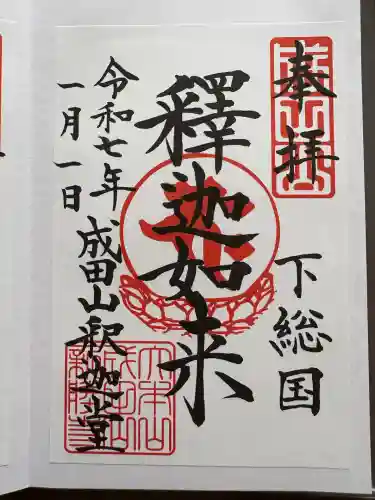 奉拝
下総国
釋迦如来
令和七年
一月一日
成田山釈迦堂